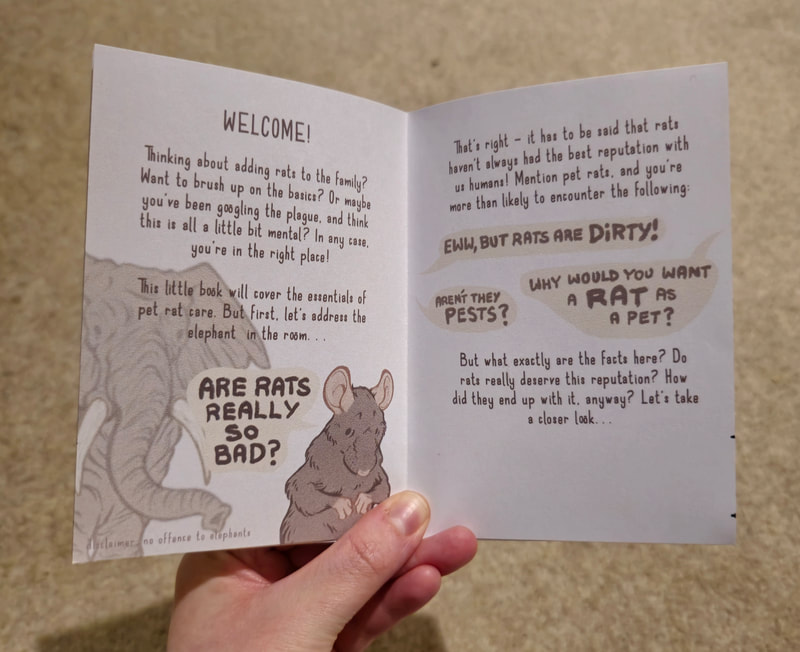 WELCOME!
Thinking about adding rats to the family?
Want to brush up on the basics? Or maybe
you've been googling the plague, and think
this is all a little bit mental? In any case,
you're in the right place!
This little book will cover the essentials of
pet rat care. But first, let's address the
elephant in the room...
ARE RATS
REALLY
SO
BAD?
disclaimer: no offence to elephants
That's right – it has to be said that rats
haven't always had the best reputation with
us humans! Mention pet rats, and you're
more than likely to encounter the following:
EWW, BUT RATS ARE DiRTY!
AREN'T THEY
PESTS?
WHY WOULD YOU WANT
A RAT AS
A PET?
But what exactly are the facts here? Do
rats really deserve this reputation? How
did they end up with it, anyway? Let's take
a closer look...